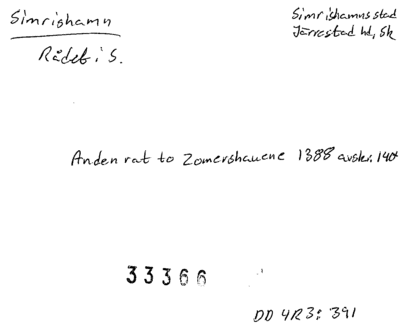 Simrishamn
Simrishamns stad
Järrestad hd, Sk
Rådet i S.
Anden rat to Zomershauene 1388 avskr. 140*
33366
DD 4R3: 391